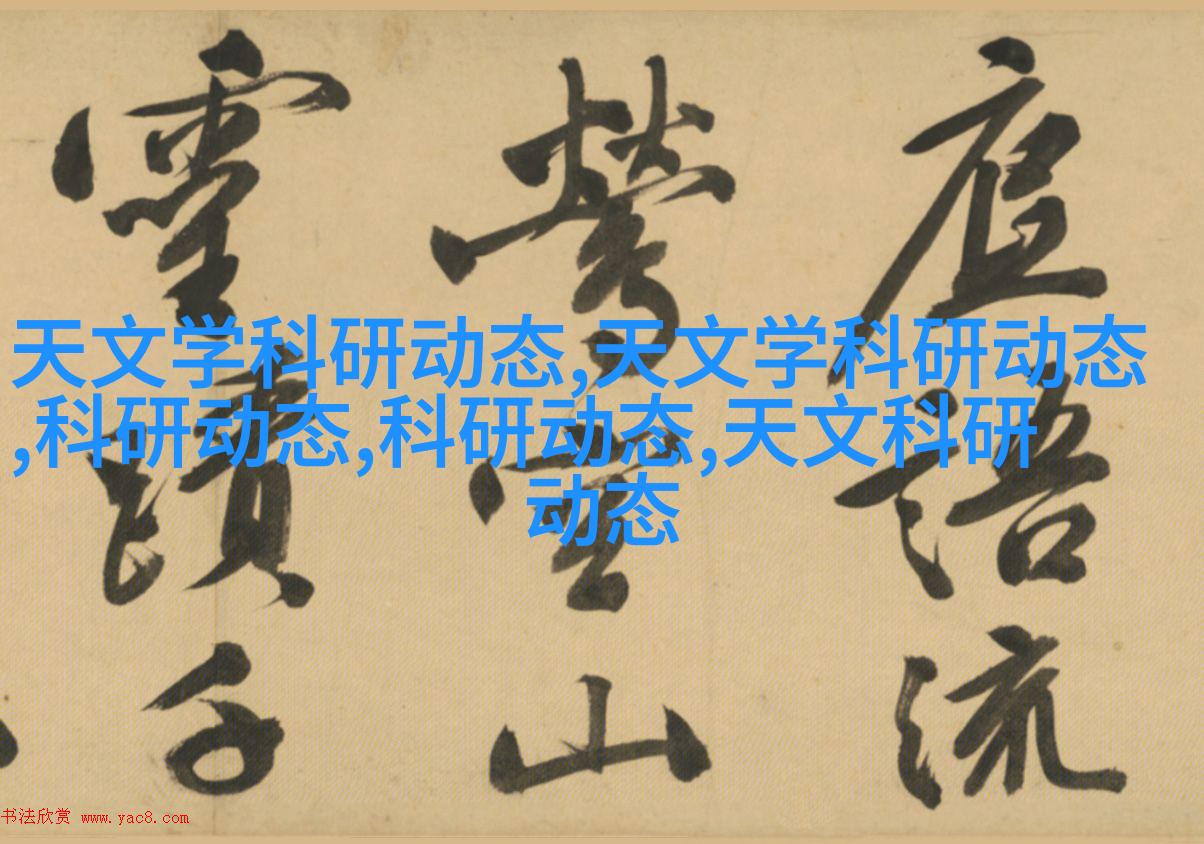 庭語流
鶯靈山
靈蹟千
天文学科研动态,天文学科研动态
,科研动态,科研动态,天文科研
动态
书法欣赏 www.yac8.com